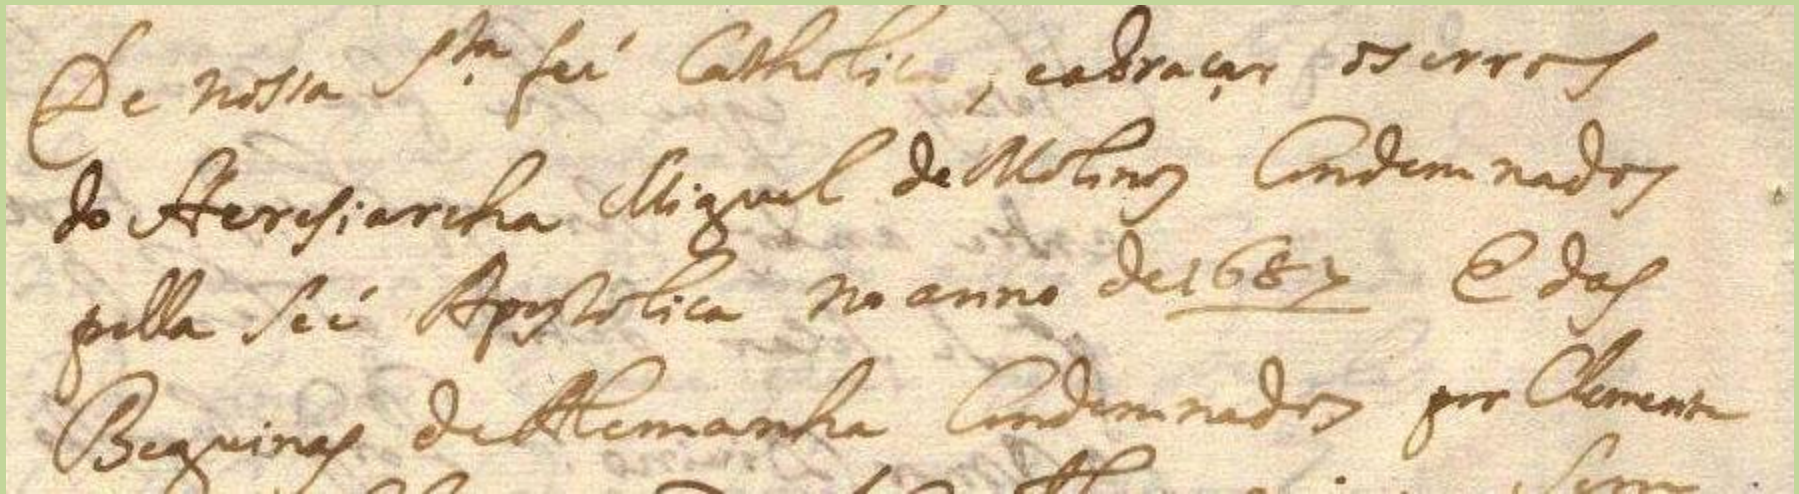 De nossa Sta feé Catholica, eabraçar os erros
do Heresiarcha Miguel de Molinos Condemnados
pella Seé Apostolica no anno de 1687 E das
Beguinas de Alemanha Condemnados por Clemente